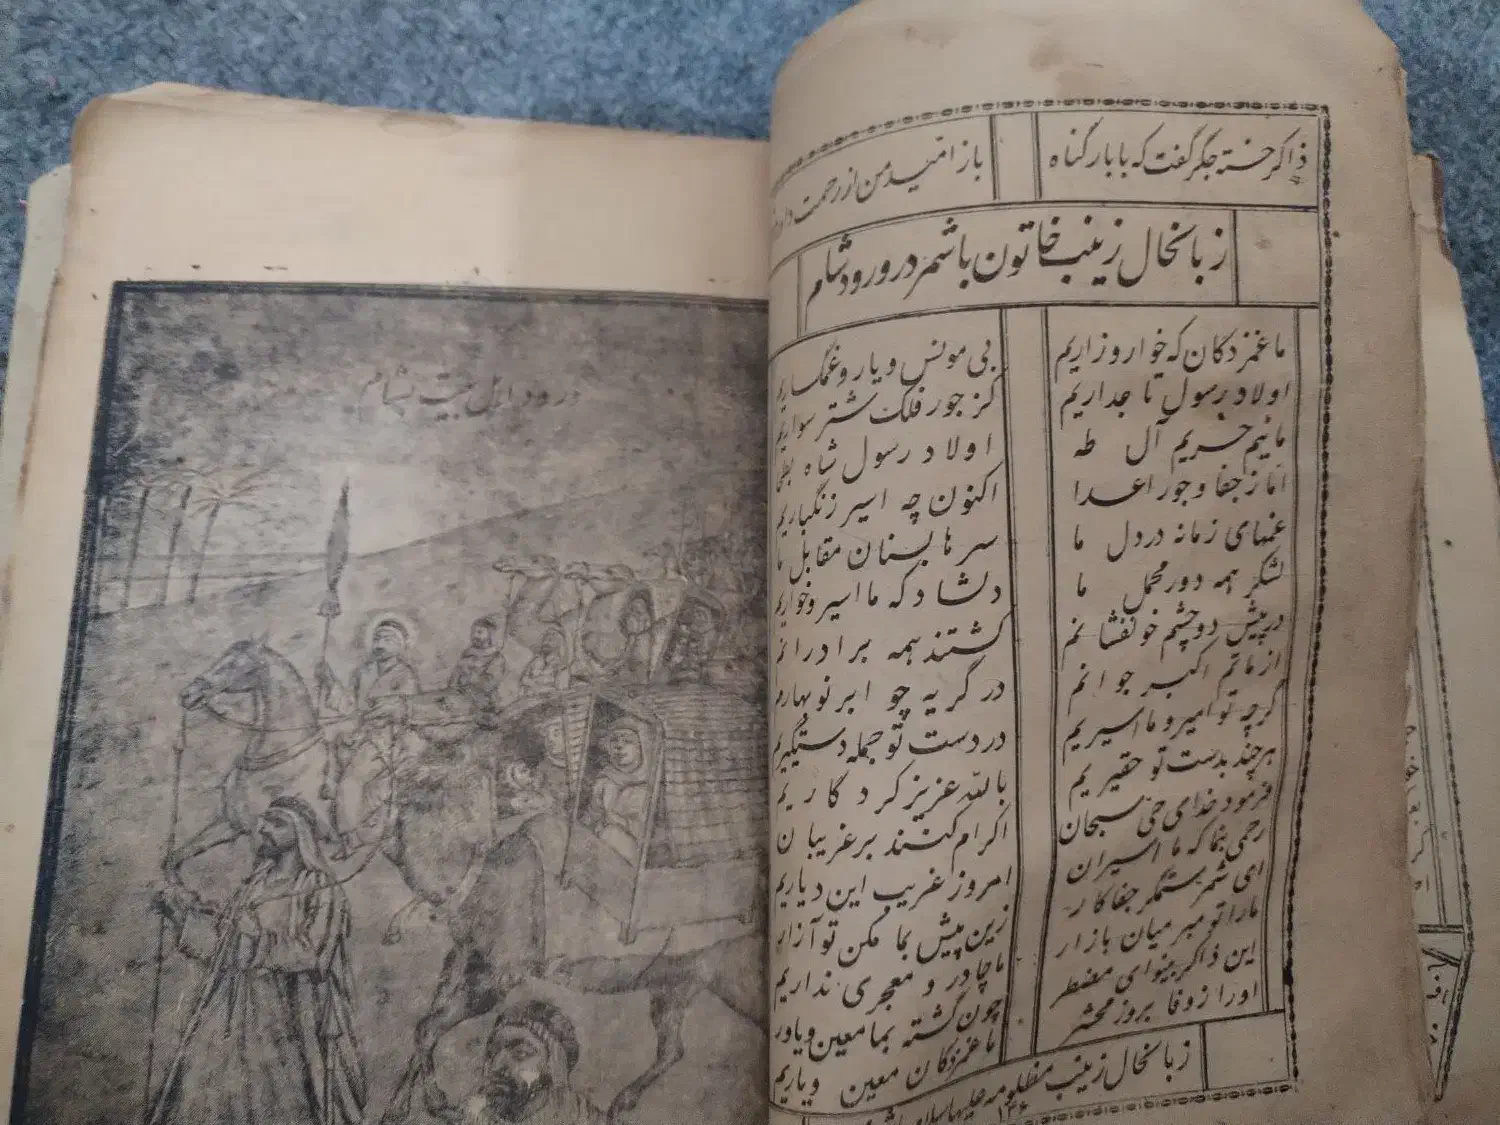 ذاکر خسته جگر گفت که با بار گناه باز امید من از رحمت
زبانحال زینب خاتون با شمر در ورود شام
ما غمزدکان که خوار و زاریم بی مونس و یار و غمگساریم
اولاد رسول تاجداریم کز جور فلک شتر سواریم
مائیم حریم آل طه اولاد رسول شاه بطحی
اما ز جفا و جور اعدا اکنون چه اسیر زنگباریم
غمهای زمانه در دل ما سرها بسنان مقابل ما
لشکر همه دور محمل ما دلشاد که ما اسیر و خواریم
در پیش دو چشم خونفشانم کشتند همه برادرانم
از ماتم اکبر جوانم در گریه چو ابر نوبهارم
گرچه تو امیر و ما اسیریم در دست تو جمله دستگیریم
هر چند بدست تو حقیریم بالله عزیز کردگاریم
فرمود خدای حی سبحان اکرام کنند بر غریبان
رحمی بنما که ما اسیران امروز غریب این دیاریم
ای شمر ستمگر جفاکار زین پیش بما مکن تو آزار
ما را تو مبر میان بازار ما چادر و معجری نداریم
این ذاکر بینوای مضطر چون گشته بما معین و یاور
او را ز وفا بروز محشر ما غمزدکان معین و یاریم
زبانحال زینب مظلومه علیهاالسلام
۱۳۶
ورود اهل بیت بشام